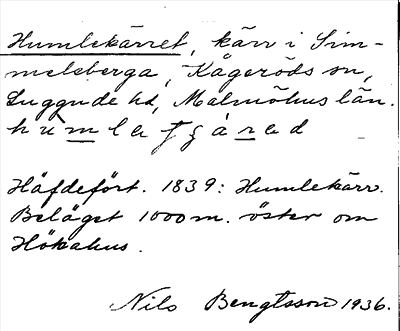 Humlekärret, kärr i Sim-
melsberga, Kågeröds sn,
Luggude hd, Malmöhus län.
Häfdefört. 1839: Humlekärr.
Beläget 1000 m. öster om
Hökahus.
Nils Bengtsson 1936.